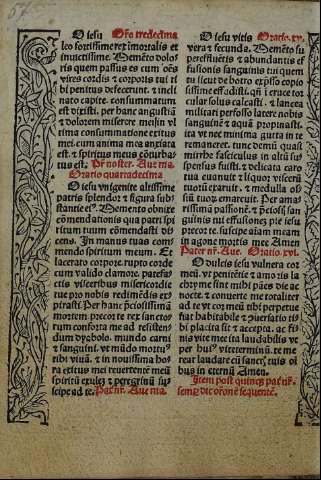 O iesu Oro tredecima
leo fortissime rex imortalis et
inuictissime. Memēto dolo
ris quem passus es cum oēs
vires cordis & corporis tui ti
bi penitus defecerunt. & incli
nato capite. consummatum
est dixisti. per hanc angustiā
& dolorem miserere mei in vl
tima consummatione exitus
mei. cum anima mea anxiata
est. & spiritus meus cōturba
tus est. Pr noster. Aue ma.
Oratio quartadecima
O iesu vnigenite altissime
patris splendor & figura sub
stantie ei9. Memento obnixe
cōmendationis qua patri spi
ritum tuum cōmendasti di
cens. In manus tuas com
mendo spiritum meum. Et
lacerato corpore. rupto corde
cum valido clamore. patefa
ctis visceribus misericordie
tue pro nobis redimēdis ex
pirasti. Per hanc preciosissimā
mortem. precor te rex sancto
rum conforta me ad resisten
dum dyabolo. mundo carni
& sanguini. vt mūdo mortu9
tibi viuā. & in nouissima ho
ra exitus mei reuertentē meū
spiritū exulē & peregrinū su
scipe ad te. Pat nr. Aue ma.
O iesu vitis Oratio. xv.
vera & fecunda. Memēto su
pereffluētis & abundantis ef
fusionis sanguinis tui quem
tu sicut de botro expisso copio
sissime effudisti. qn̄ i cruce tor
cular solus calcasti. & lancea
militari perfosso latere nobis
sanguinē & aquā propinasti.
ita vt nec minima gutta in te
remaneret. tunc demū quasi
mirrhe fasciculus in altū su
spensus fuisti. & delicata caro
tua euanuit & liquor viscerū
tuorū exaruit. & medulla os
siū tuor emarcuit. Per ama
rissimā passionē. & preciosi san
guinis tui effusionē pie iesu
precor te. suscipe aīam meam
in agone mortis mee Amen
Pater nr. Aue. Oratio. xvi.
O dulcis iesu vulnera cor
meū. vt penitētie & amoris la
chryme sint mihi panes die ac
nocte. & conuerte me totaliter
ad te vt cor meū tibi perpetue
fiat habitabile & puersatio ti
bi placita sit & accepta. ac fi
nis vite mee ita laudabilis vt
per hui9 vite terminū. te me
rear laudare cū sanctis tuis oi
bus in eternū Amen.
Item post quinq; pat nr.
semp dic orōnē sequentē.